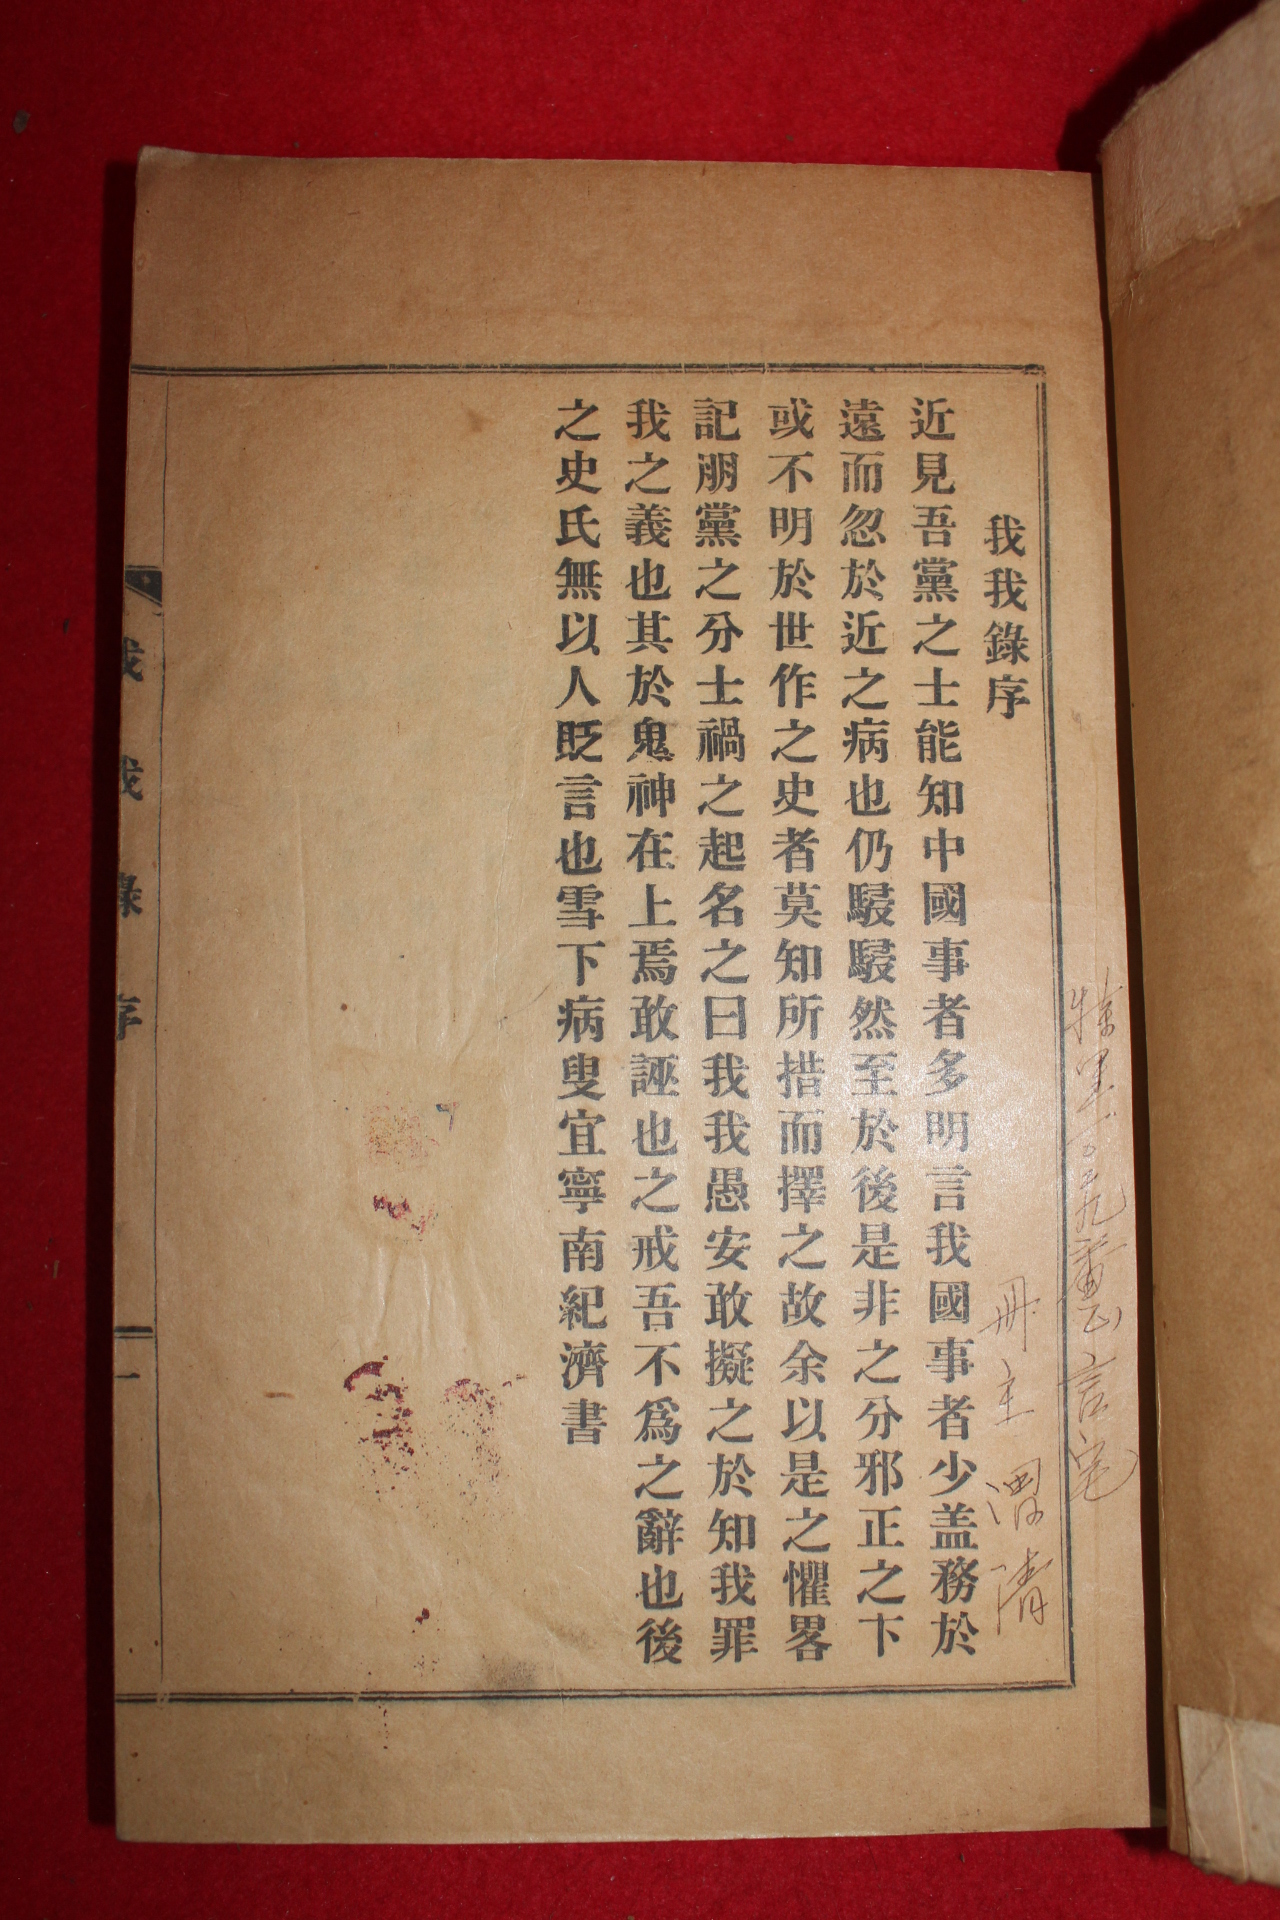 我我錄序
近見吾黨之士能知中國事者多明言我國事者少盖務於
遠而忽於近之病也仍駸駸然至於後是非之分邪正之卞
或不明於世作之史者莫知所措而擇之故余以是之懼畧
記朋黨之分士禍之起名之曰我我愚安敢擬之於知我罪
我之義也其於鬼神在上焉敢誣也之戒吾不爲之辭也後
之史氏無以人貶言也雪下病叟宜寧南紀濟書
我我錄序
一
冊主